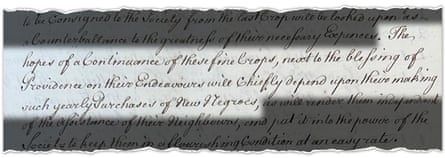 to be Consigned to the Society from the last Crop will be looked upon as
a Counterballance to the greatness of their necessary Expences. The
hopes of a Continuance of these fine Crops, next to the blessing of
Providence on their Endeavours will Chiefly depend upon their making
such yearly Purchases of New Negroes, as will render them independent
of the Assistance of their Neighbours, and put it into the power of the
Society to keep them in a flourishing Condition at an easy rate.